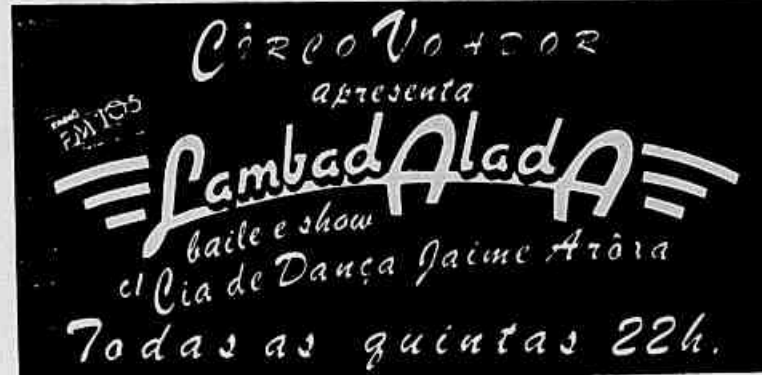 Circo Voador
apresenta
RADIO
FM 105
LambadAladA
baile e show
c/ Cia de Dança Jaime Arôxa
Todas as quintas 22h.